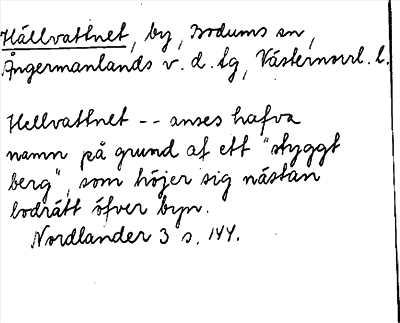 Hällvattnet, by, Bodums sn,
Ångermanlands v. d. lg, Västernorrl. l.
Hellvattnet -- anses hafva
namn på grund af ett "styggt
berg", som höjer sig nästan
lodrätt öfver byn.
Nordlander 3 s. 144.